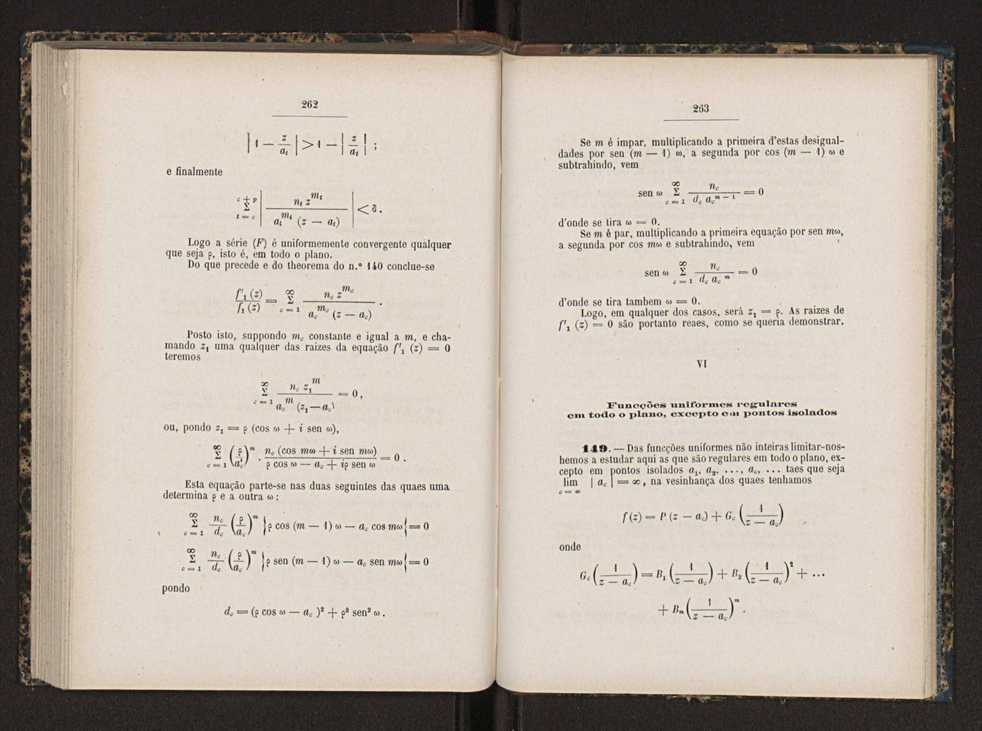 262
| 1 − z/a_t | > 1 − | z/a_t | ;
e finalmente
Σ_{t = c}^{c + p} | n_t z^{m_t} / a_t^{m_t} (z − a_t) | < δ.
Logo a série (F) é uniformemente convergente qualquer
que seja ρ, isto é, em todo o plano.
Do que precede e do theorema do n.º 140 conclue-se
f'₁ (z) / f₁ (z) = Σ_{c = 1}^{∞} n_c z^{m_c} / a_c^{m_c} (z − a_c) .
Posto isto, suppondo m_c constante e igual a m, e cha-
mando z₁ uma qualquer das raizes da equação f'₁ (z) = 0
teremos
Σ_{c = 1}^{∞} n_c z₁^m / a_c^m (z₁ — a_c) = 0 ,
ou, pondo z₁ = ρ (cos ω + i sen ω),
Σ_{c = 1}^{∞} (ρ/a_c)^m . n_c (cos mω + i sen mω) / ρ cos ω — a_c + iρ sen ω = 0 .
Esta equação parte-se nas duas seguintes das quaes uma
determina ρ e a outra ω :
Σ_{c = 1}^{∞} n_c/d_c (ρ/a_c)^m {ρ cos (m — 1) ω — a_c cos mω} = 0
Σ_{c = 1}^{∞} n_c/d_c (ρ/a_c)^m {ρ sen (m — 1) ω — a_c sen mω} = 0
pondo
d_c = (ρ cos ω — a_c )² + ρ² sen² ω .
263
Se m é impar, multiplicando a primeira d'estas desigual-
dades por sen (m — 1) ω, a segunda por cos (m — 1) ω e
subtrahindo, vem
sen ω Σ_{c = 1}^{∞} n_c / d_c a_c^{m − 1} = 0
d'onde se tira ω = 0.
Se m é par, multiplicando a primeira equação por sen mω,
a segunda por cos mω e subtrahindo, vem
sen ω Σ_{c = 1}^{∞} n_c / d_c a_c^m = 0
d'onde se tira tambem ω = 0.
Logo, em qualquer dos casos, será z₁ = ρ. As raizes de
f'₁ (z) = 0 são portanto reaes, como se queria demonstrar.
VI
Funcções uniformes regulares
em todo o plano, excepto em pontos isolados
149. — Das funcções uniformes não inteiras limitar-nos-
hemos a estudar aqui as que são regulares em todo o plano, ex-
cepto em pontos isolados a₁, a₂, ..., a_c, ... taes que seja
lim_{c = ∞} | a_c | = ∞ , na vesinhança dos quaes tenhamos
f (z) = P (z — a_c) + G_c (1 / z — a_c)
onde
G_c (1 / z — a_c) = B₁ (1 / z — a_c) + B₂ (1 / z — a_c)² + ...
+ B_m (1 / z — a_c)^m .